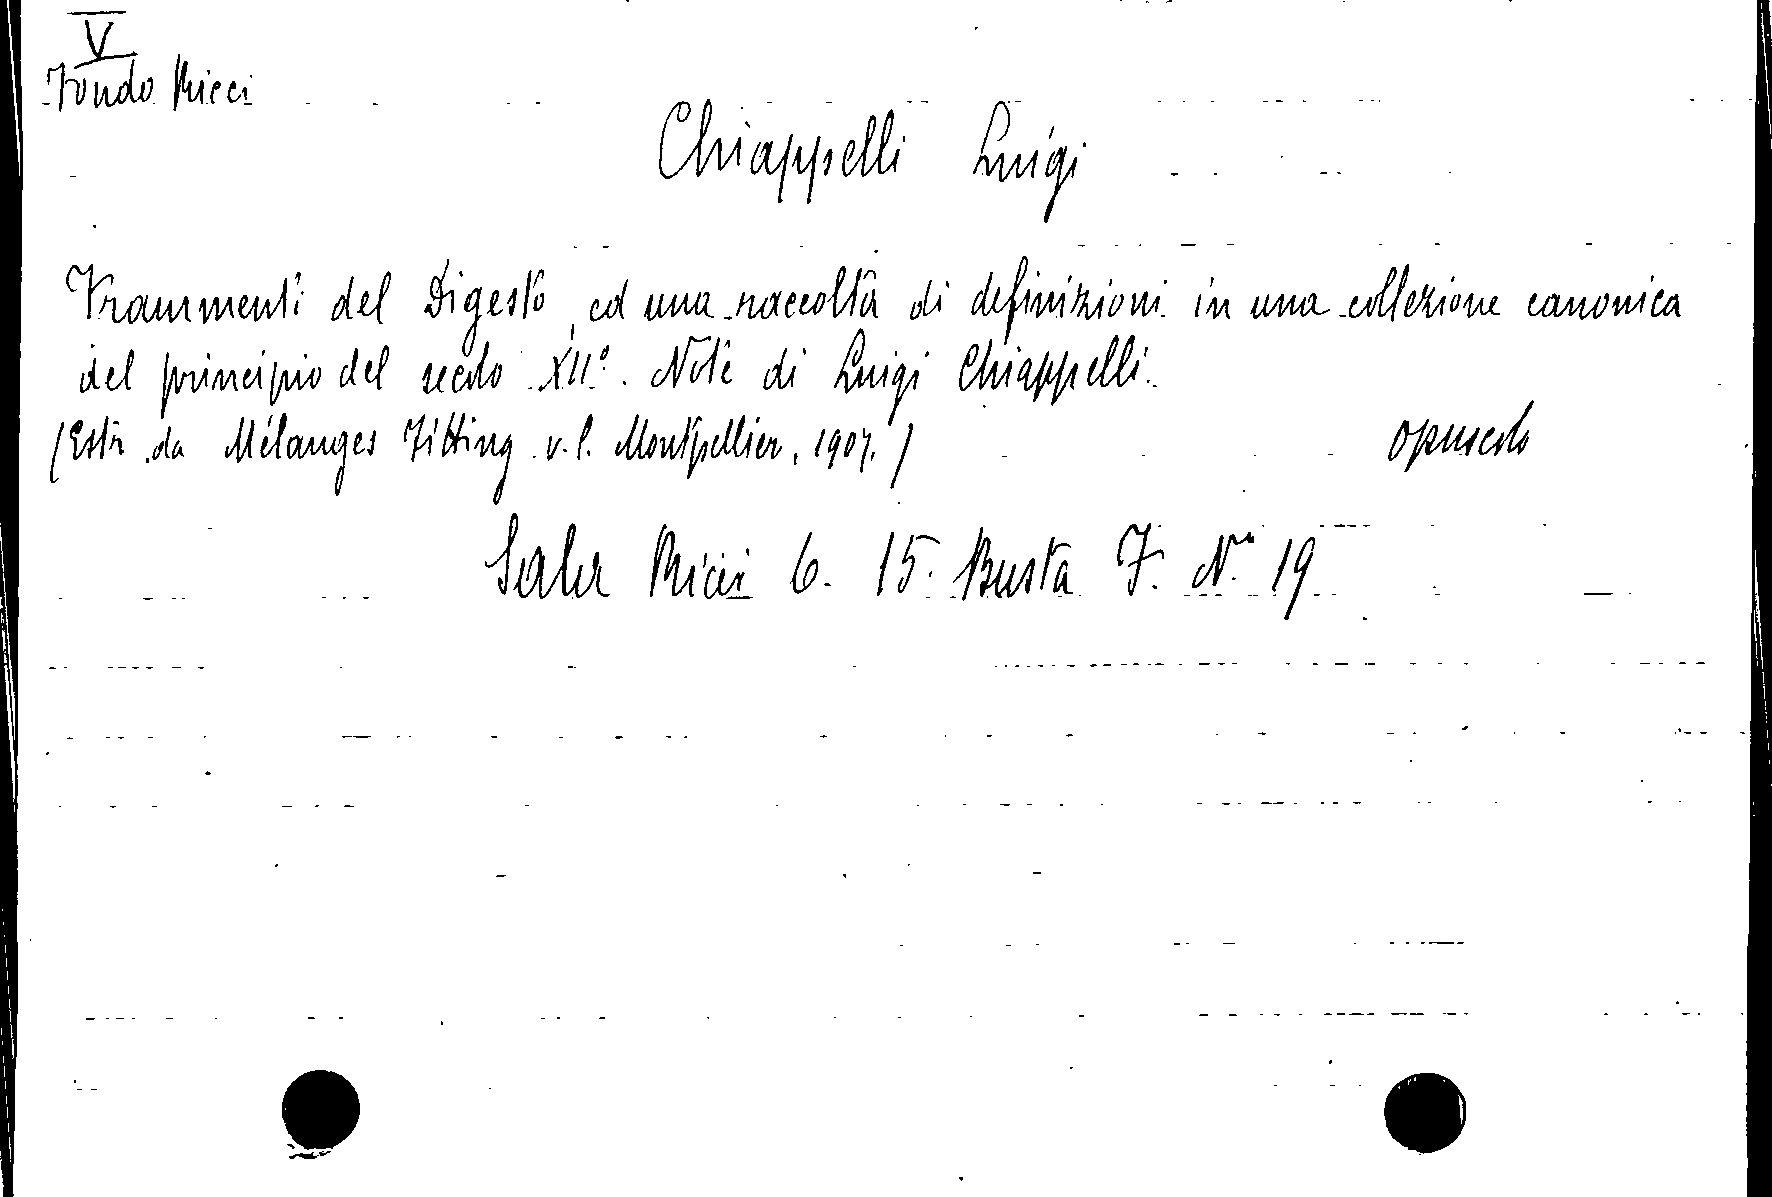 V
Fondo Ricci
Chiappelli Luigi
Frammenti del Digesto, ed una raccolta di definizioni in una collezione canonica
del principio del secolo XII°. Note di Luigi Chiappelli.
(Estr. da Mélanges Fitting v. I. Montpellier, 1907.)
opuscolo
Sala Ricci 6. 15. Busta F. N.° 19